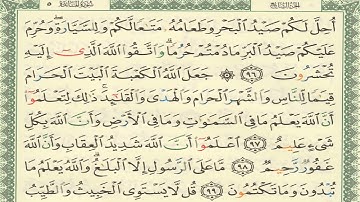 أُحِلَّ لَكُمْ صَيْدُ ٱلْبَحْرِ وَطَعَامُهُۥ مَتَٰعًا لَّكُمْ وَلِلسَّيَّارَةِ ۖ وَحُرِّمَ
عَلَيْكُمْ صَيْدُ ٱلْبَرِّ مَا دُمْتُمْ حُرُمًا ۗ وَٱتَّقُوا۟ ٱللَّهَ ٱلَّذِىٓ إِلَيْهِ
تُحْشَرُونَ ٩٦ جَعَلَ ٱللَّهُ ٱلْكَعْبَةَ ٱلْبَيْتَ ٱلْحَرَامَ
قِيَٰمًا لِّلنَّاسِ وَٱلشَّهْرَ ٱلْحَرَامَ وَٱلْهَدْىَ وَٱلْقَلَٰٓئِدَ ۚ ذَٰلِكَ لِتَعْلَمُوٓا۟
أَنَّ ٱللَّهَ يَعْلَمُ مَا فِى ٱلسَّمَٰوَٰتِ وَمَا فِى ٱلْأَرْضِ وَأَنَّ ٱللَّهَ بِكُلِّ
شَىْءٍ عَلِيمٌ ٩٧ ٱعْلَمُوٓا۟ أَنَّ ٱللَّهَ شَدِيدُ ٱلْعِقَابِ وَأَنَّ ٱللَّهَ
غَفُورٌ رَّحِيمٌ ٩٨ مَّا عَلَى ٱلرَّسُولِ إِلَّا ٱلْبَلَٰغُ ۗ وَٱللَّهُ يَعْلَمُ مَا
تُبْدُونَ وَمَا تَكْتُمُونَ ٩٩ قُل لَّا يَسْتَوِى ٱلْخَبِيثُ وَٱلطَّيِّبُ